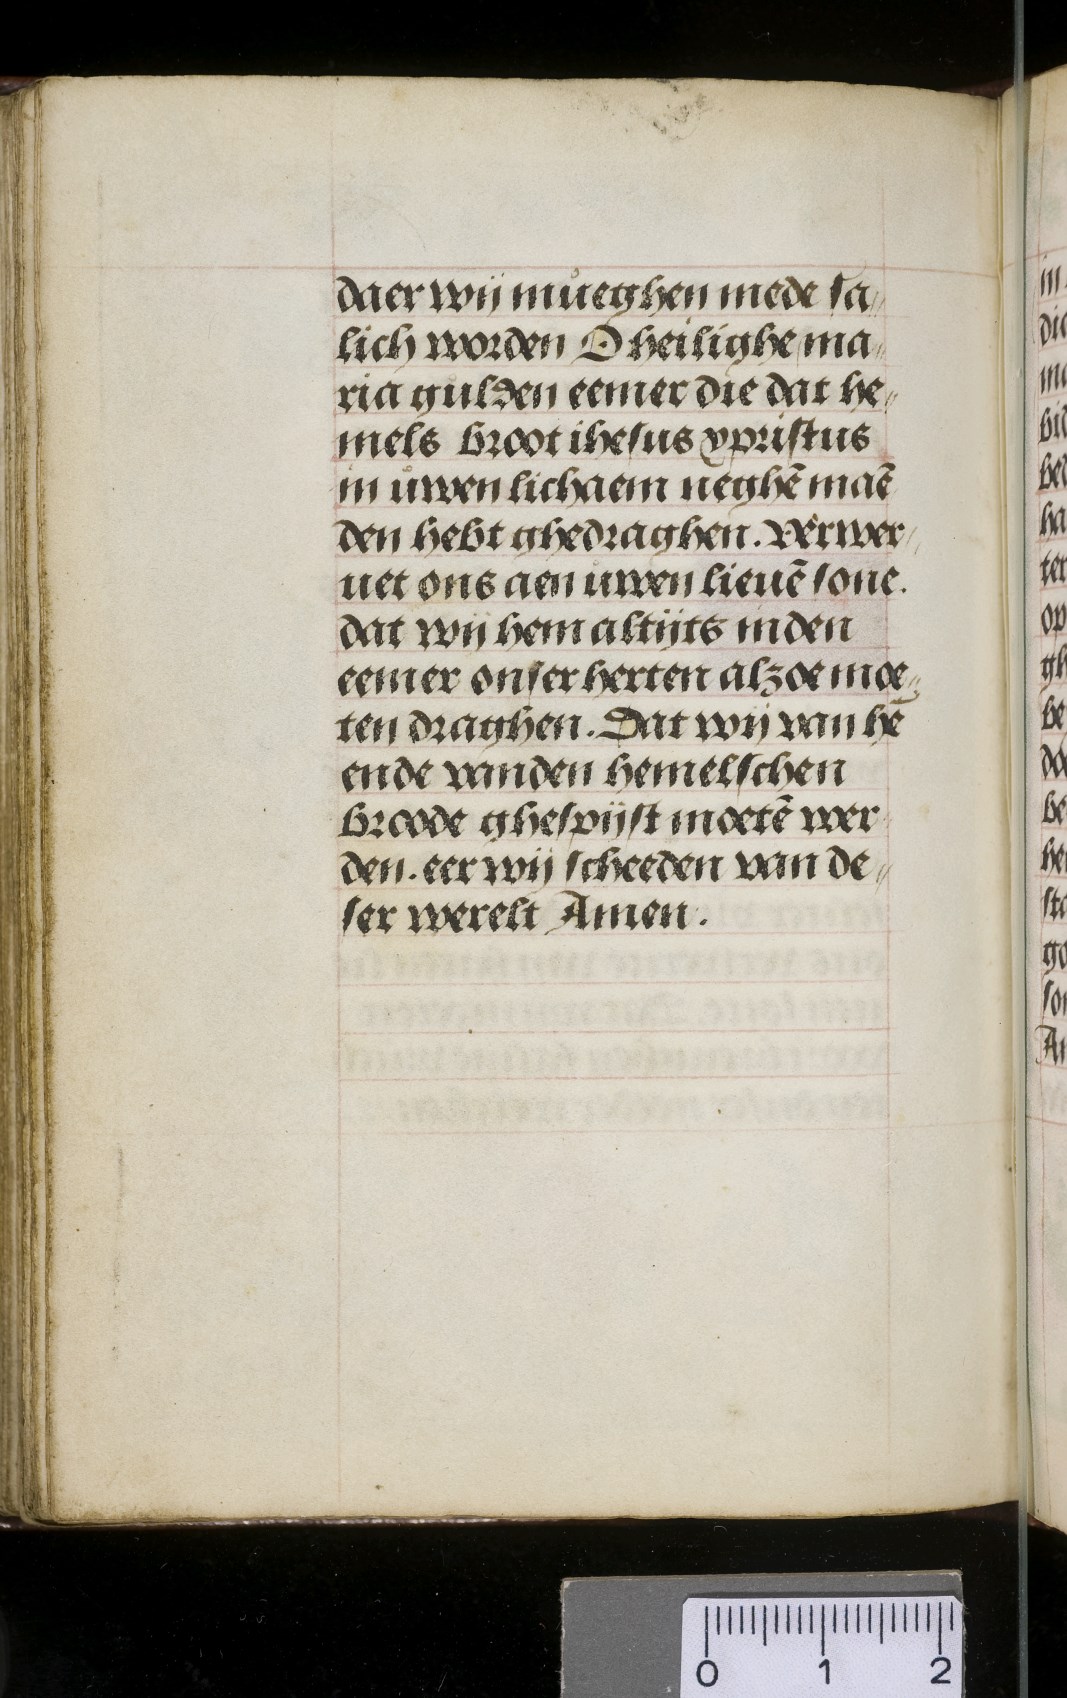 daer wij mueghen mede sa„
lich worden O heilighe ma„
ria gulden eemer die dat he„
mels broot ihesus xpristus
in uwen lichaem neghē maē
den hebt ghedraghen. Verwer„
uet ons aen uwen lieuē sone.
dat wij hem altijts in den
eemer onser herten alzoe moe„
ten draghen. Dat wij van hē
ende vanden hemelschen
broode ghespijst moetē wer
den. eer wij scheeden van de„
ser werelt Amen.
in
die
ma
bid
hed
ha
ter
op
gh
be
doe
be
he
sta
go
son
Am
0 1 2